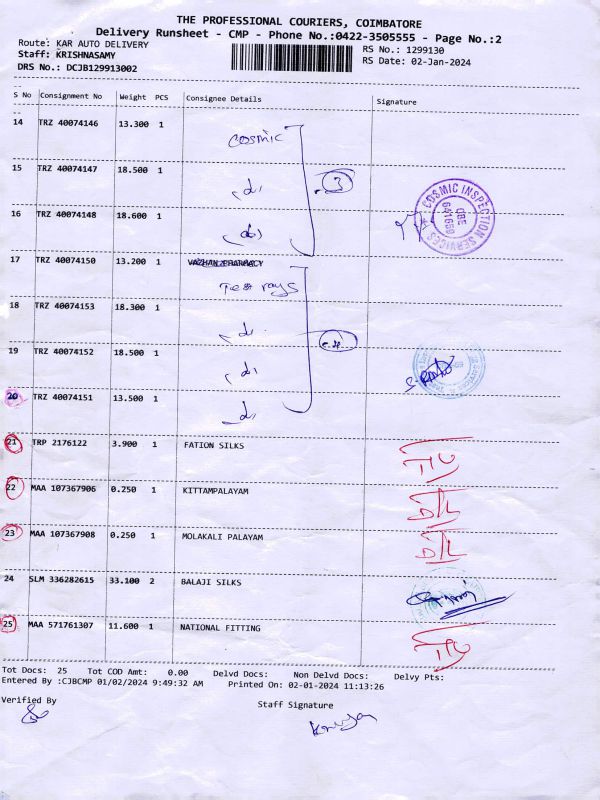 THE PROFESSIONAL COURIERS, COIMBATORE
Delivery Runsheet - CMP - Phone No.:0422-3505555 - Page No.:2
Route: KAR AUTO DELIVERY
RS No.: 1299130
Staff: KRISHNASAMY
RS Date: 02-Jan-2024
DRS No.: DCJB129913002
S No Consignment No Weight PCS Consignee Details Signature
14 TRZ 40074146 13.300 1 cosmic
15 TRZ 40074147 18.500 1 do 3
16 TRZ 40074148 18.600 1 do
COSMIC INSPECTION SERVICES
CBE
641659
17 TRZ 40074150 13.200 1
Test rays
18 TRZ 40074153 18.300 1 do
19 TRZ 40074152 18.500 1 do
20 TRZ 40074151 13.500 1 do
21 TRP 2176122 3.900 1 FATION SILKS
22 MAA 107367906 0.250 1 KITTAMPALAYAM D/L
23 MAA 107367908 0.250 1 MOLAKALI PALAYAM D/L
24 SLM 336282615 33.100 2 BALAJI SILKS
25 MAA 571761307 11.600 1 NATIONAL FITTING
Tot Docs: 25 Tot COD Amt: 0.00 Delvd Docs: Non Delvd Docs: Delvy Pts:
Entered By :CJBCMP 01/02/2024 9:49:32 AM Printed On: 02-01-2024 11:13:26
Verified By Staff Signature